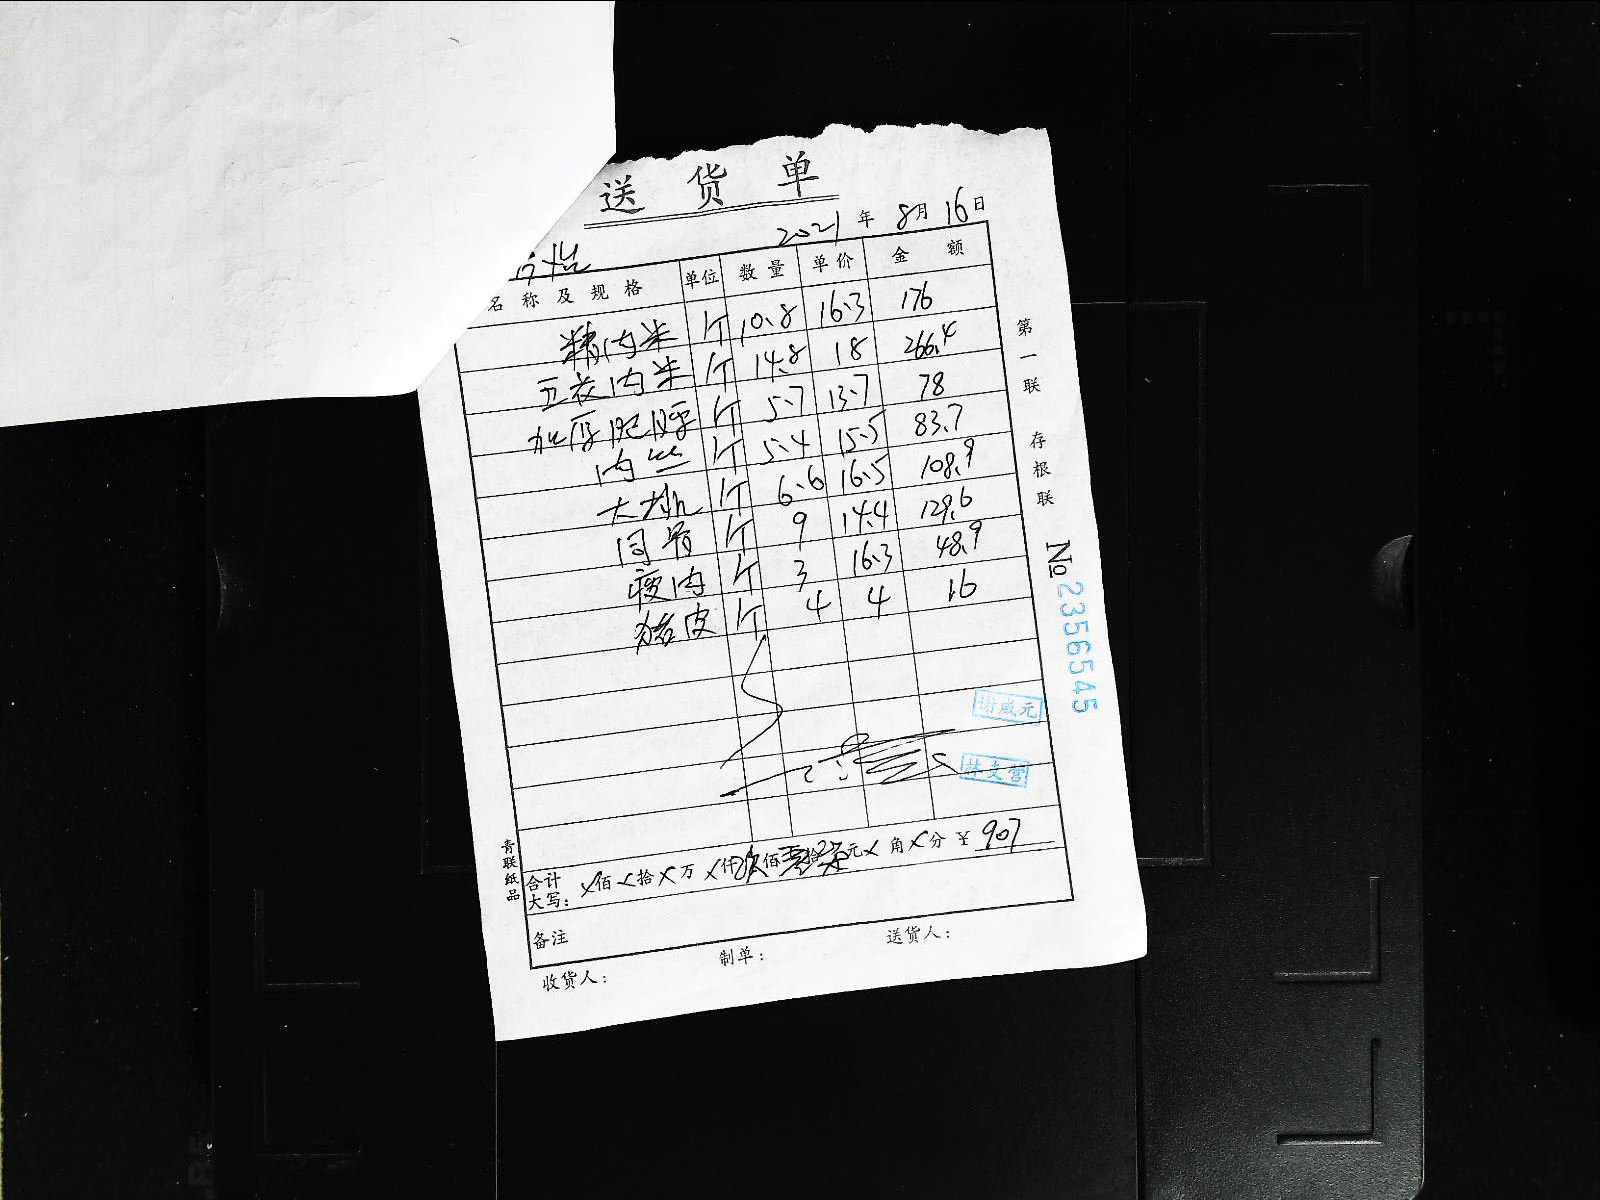 送货单
2021年8月16日
名称及规格 单位 数量 单价 金额
精肉米 个 10.8 16.3 176
五花肉米 个 14.8 18 266.4
加厚肥膘 个 5.7 13.7 78
肉丝 个 5.4 15.5 83.7
大排 个 6.6 16.5 108.9
同骨 个 9 14.4 129.6
瘦肉 个 3 16.3 48.9
猪皮 个 4 4 16
谢咸元
林文营
合计大写: ×佰×拾×万×仟 佰 拾 元×角×分 ¥907
备注
收货人: 制单: 送货人:
第一联 存根联
№2356545
青联纸品